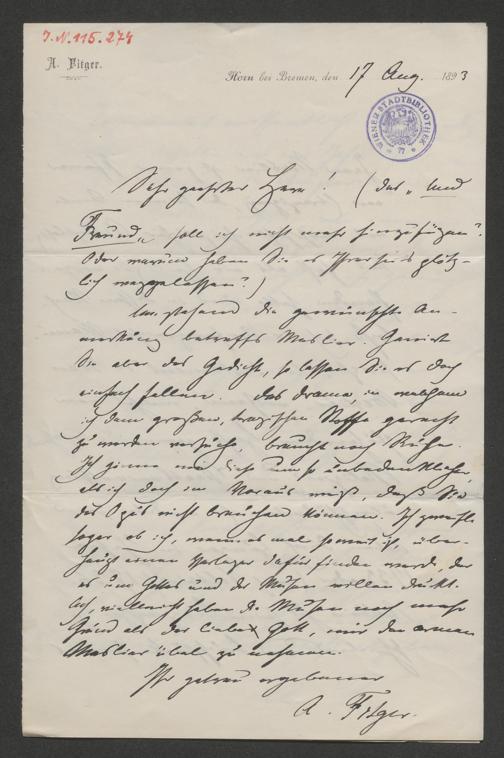 J. N. 115.274
A. Fitger.
Horn bei Bremen, den 17 Aug. 1893
WIENER STADTBIBLIOTHEK
Sehr geehrter Herr! (das „Und
Freund„ soll ich nicht mehr hinzufügen?
Oder warum haben Sie es Ihrerseits plötz-
lich weggelassen?)
 stehend die gewünschte An-
merkung betreffs Meslier. Geniert
Sie aber das Gedicht, so lassen Sie es doch
einfach fallen. Das Drama, in welchem
ich dem großen, tragischen Stoffe gerecht
zu werden versuche, braucht noch Ruhe.
Ich gönne mir diese um so unbedenklicher,
als ich doch im Voraus weiß, daß Sie
das Opus nicht brauchen können. Ich zweifle
sogar ob ich, wenn es mal soweit ist, über-
haupt einen Verleger dafür finden werde, der
es um Gottes und der Musen willen druckt.
Ach, vielleicht haben die Musen noch mehr
Grund als der liebe Gott, mir den armen
Meslier übel zu nehmen.
Ihr getreu ergebener
A. Fitger.